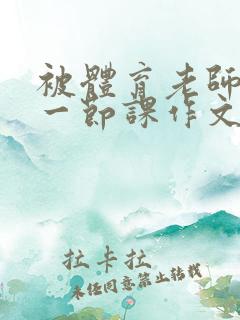 被體育老師
一節課作文
拉卡拉
未经同意禁止转载